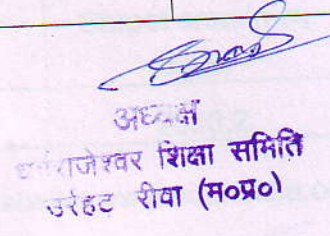 अध्यक्ष
शिक्षा समिति
उर्रहट रीवा (म०प्र०)